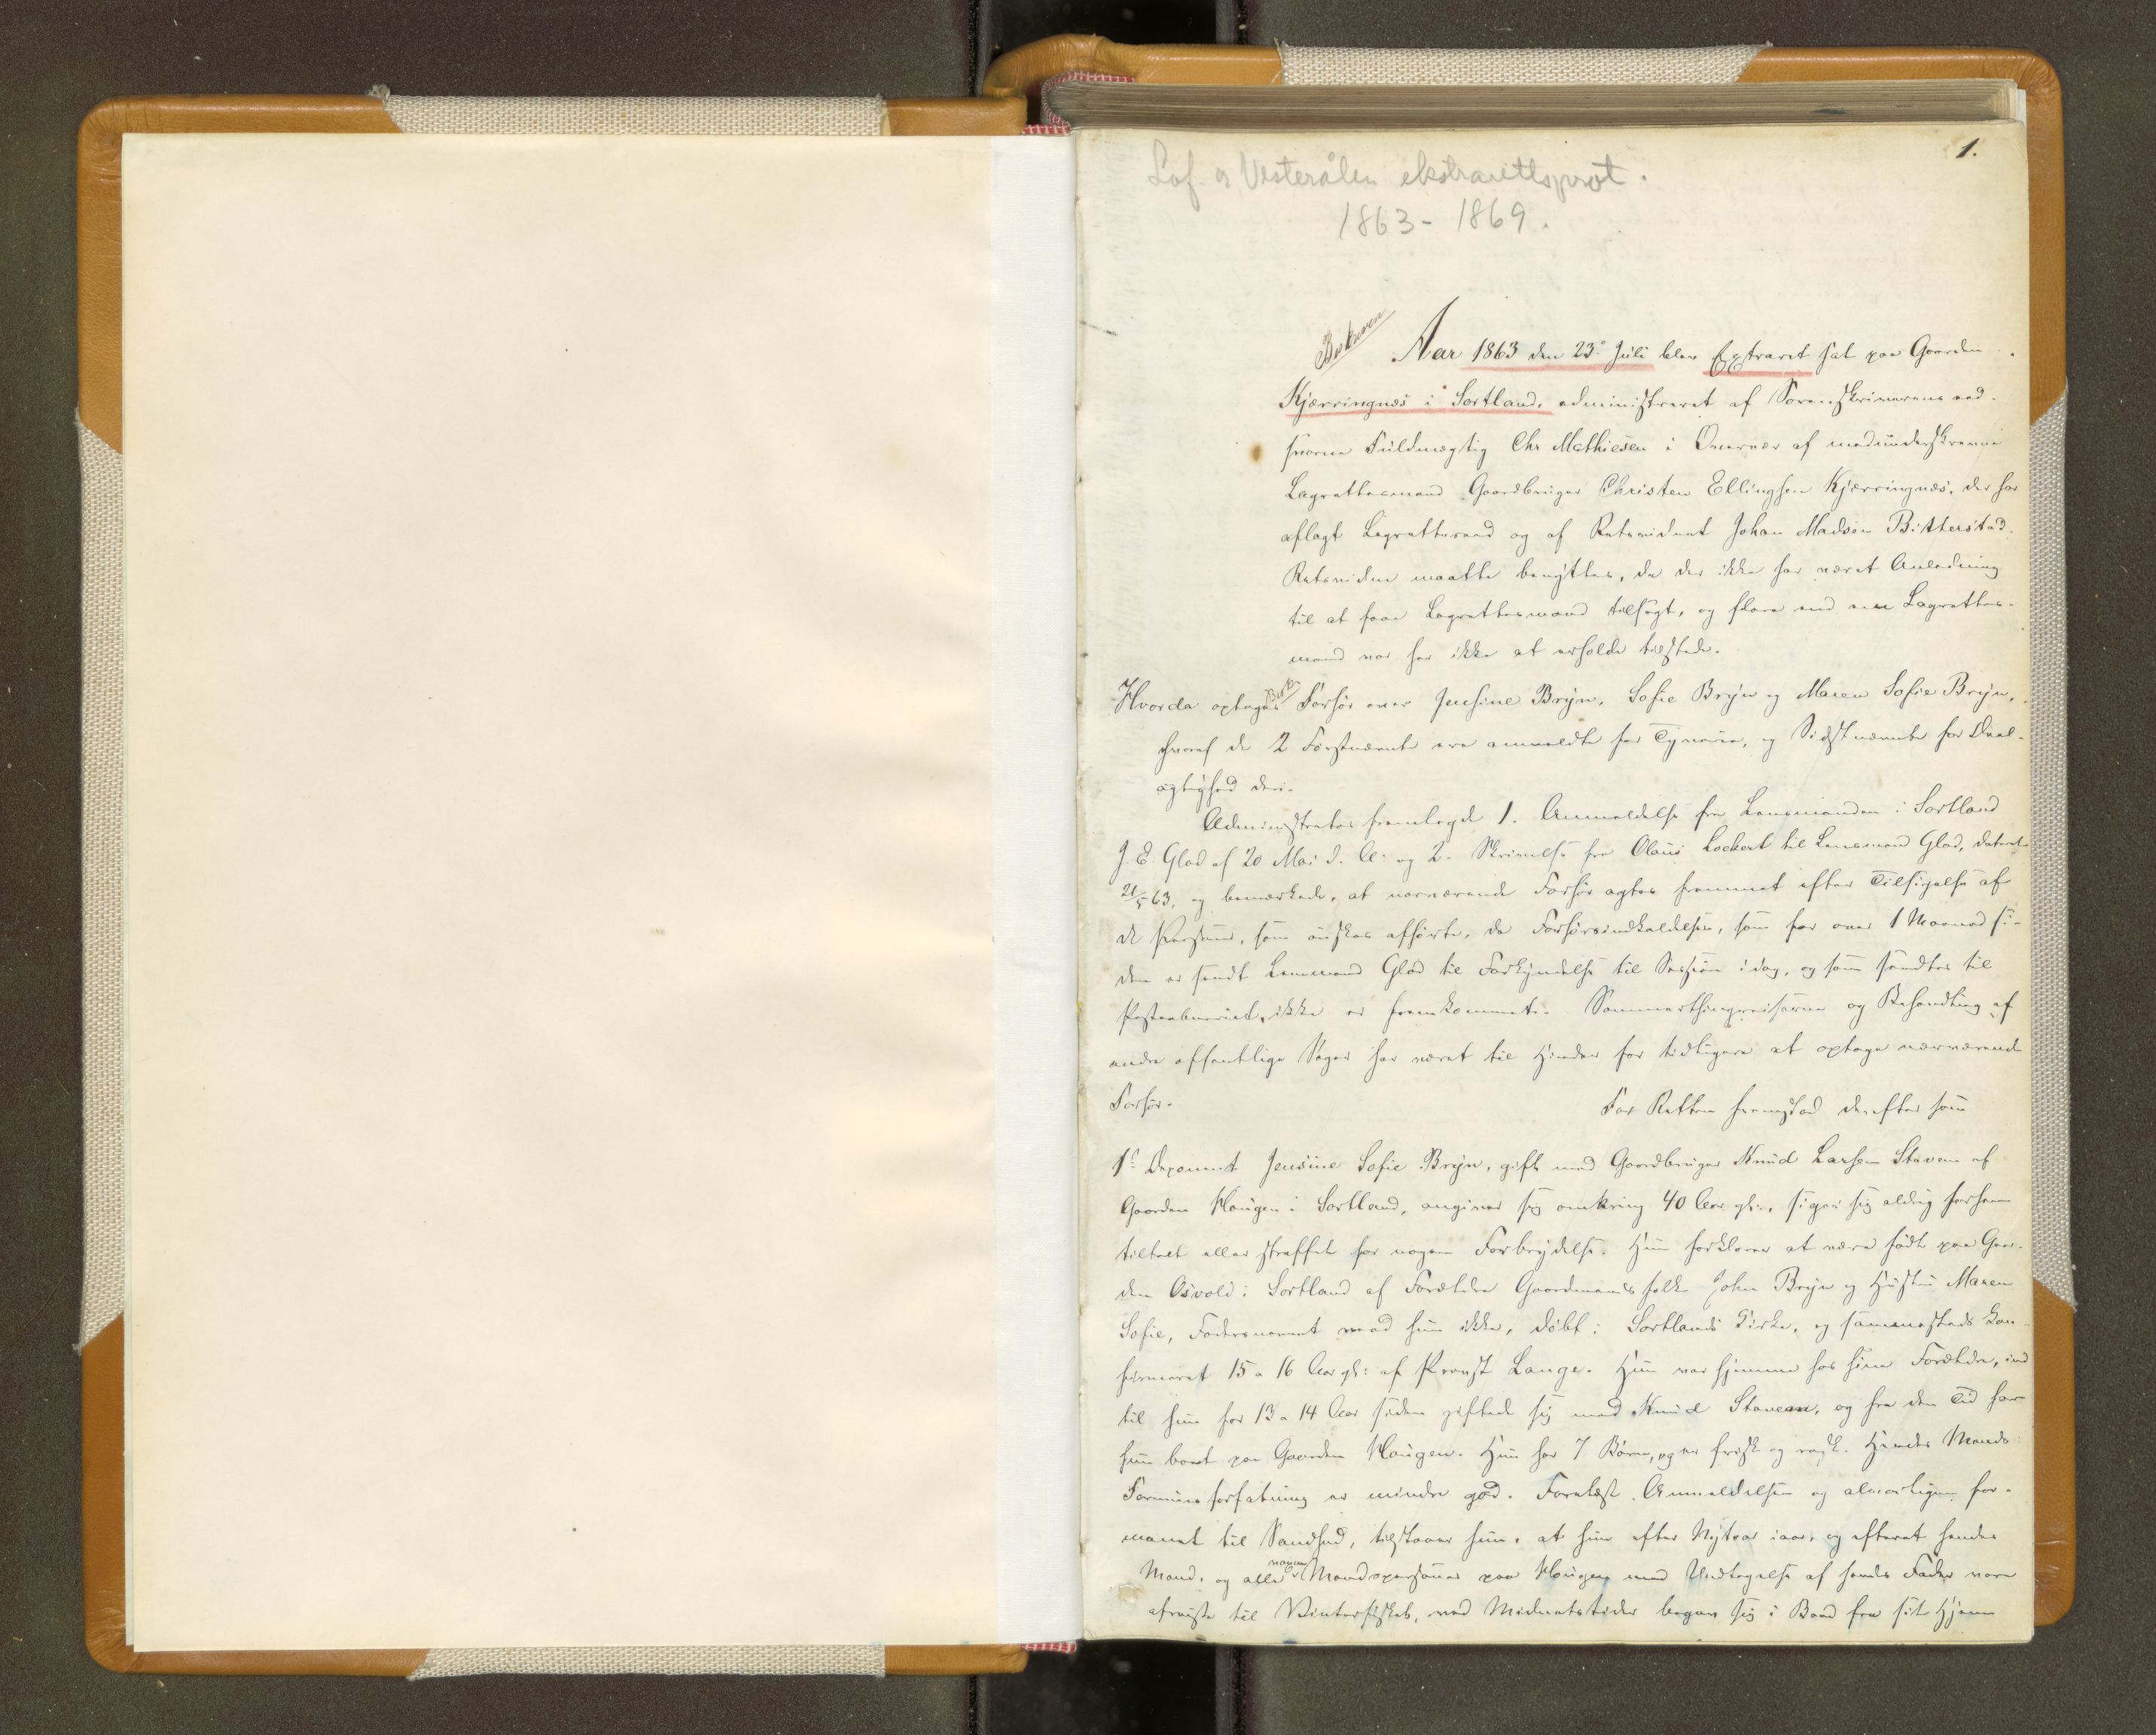 1.
Lof. og Vesterålen ekstrarettsprot.
1863-1869.
Beskreven
Aar 1863 den 23de Juli blev Extraret sat paa Gaarden
Kjærringnæs i Sortland, administreret af Sorenskriverens ed-
svorne Fuldmægtig Chr Mathiesen i Overvær af medunderskrevne
Lagrettesmand Gaardbruger Christen Ellingsen Kjærringnæs, der har
aflagt Lagretteseed og af Retsvidnet Johan Madsen Bitterstad.
Retsvidne maatte benyttes, da der ikke har været Anledning
til at faae Lagrettesmænd tilsagt, og flere end een Lagrettes-
mand var her ikke at erholde tilstede.
Hvorda optoges Besk. Forhør over Jensine Bryn, Sofie Bryn og Maren Sofie Bryn,
hvoraf de 2 Førstnævnte ere anmeldte for Tyverie, og Sidstnævnte for Deel-
agtighed deri.
Administrator fremlagde 1. Anmeldelse fra Lensmanden i Sortland
J. E. Glad af 20 Mai d. A. og 2. Skrivelse fra Olaus Lockert til Lensmand Glad, dateret
21/5 63, og bemærkede, at nærværende Forhør agtes fremmet efter Tilsigelse af
de Personer, som ønskes afhørte, da Forhørsindkaldelsen, som for over 1 Maaned si-
den er sendt Lensmand Glad til Forkyndelse til Session idag, og som sendtes til
Postaabneriet, ikke er fremkommet. Sommerthingreiserne og Behandling af
andre offentlige Sager har været til Hinder for tidligere at optage nærværende
Forhør. For Retten fremstod derefter som
1ste Deponent Jensine Sofie Bryn, gift med Gaardbruger Knud Larsen Staven af
Gaarden Haugen i Sortland, angiver sig omkring 40 Aar gl., siger sig aldrig forhen
tiltalt eller straffet for nogen Forbrydelse. Hun forklarer at være født paa Gaar-
den Osvold i Sortland af Forældre Gaardmandsfolk John Bryn og Hustru Maren
Sofie, Fødersnavnet veed hun ikke, døbt i Sortlands Kirke, og sammesteds kon-
firmeret 15 a 16 Aar gl: af Provst Lange. Hun var hjemme hos sine Forældre, ind
til hun for 13 a 14 Aar siden giftede sig med Knud Staven, og fra den Tid har
hun boet paa Gaarden Haugen. Hun har 7 Børn, og er frisk og rask. Hendes Mands
Formuesforfatning er mindre god. Forelæst Anmeldelsen og alvorligen for-
manet til Sandhed, tilstaaer hun, at hun efter Nytaar iaar, og efterat hendes
Mand, og alle voxne Mandspersoner paa Haugen med Undtagelse af hendes Fader vare
afreiste til Vinterfiskeb, ved Midnatstider begav sig i Baad fra sit Hjem